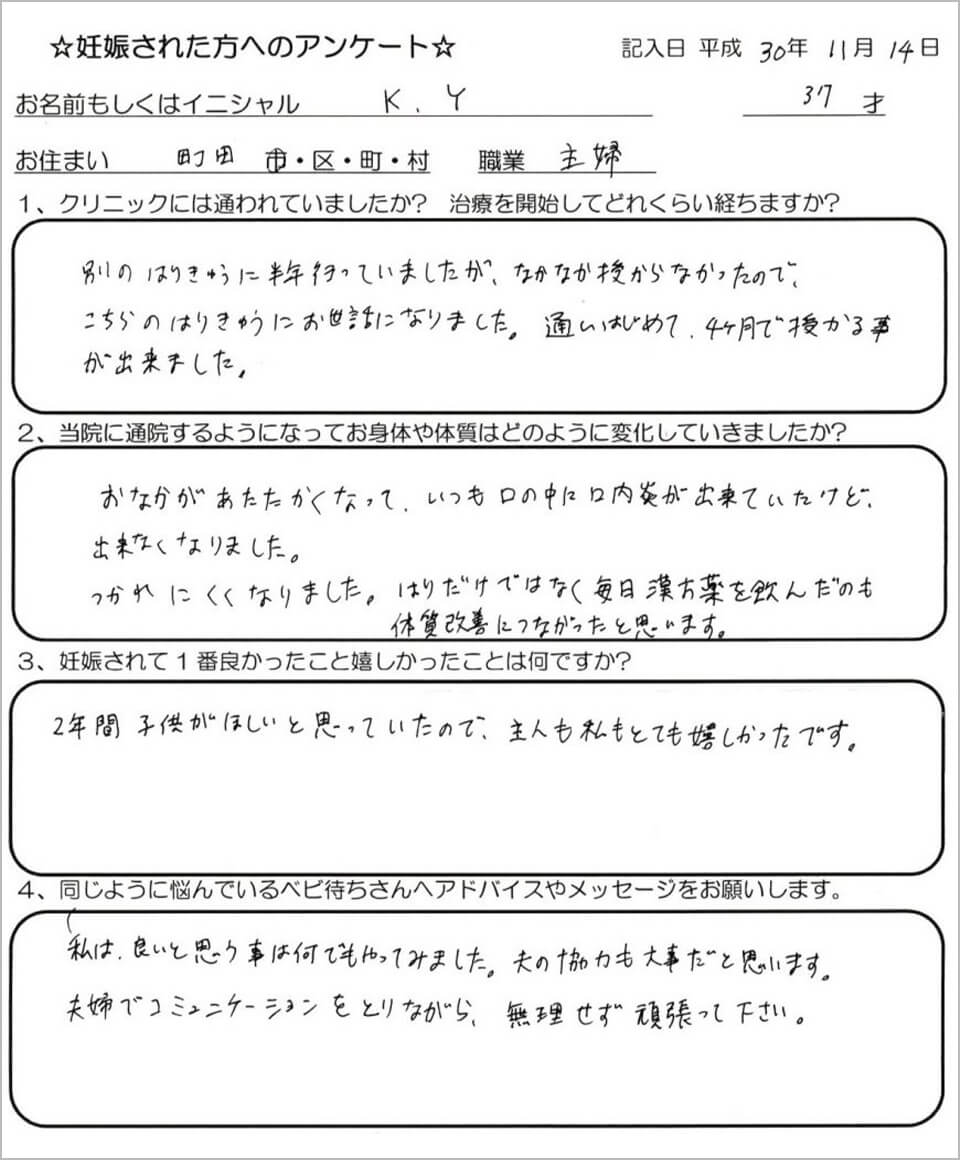 ☆妊娠された方へのアンケート☆ 記入日 平成 30年 11月 14日
お名前もしくはイニシャル K.Y 37 才
お住まい 町田 市・区・町・村 職業 主婦
1、クリニックには通われていましたか? 治療を開始してどれくらい経ちますか?
別のはりきゅうに半年行っていましたが、なかなか授からなかったので、
こちらのはりきゅうにお世話になりました。通いはじめて、4ヶ月で授かる事
が出来ました。
2、当院に通院するようになってお身体や体質はどのように変化していきましたか?
おなかがあたたかくなって、いつも口の中に口内炎が出来ていたけど、
出来なくなりました。
つかれにくくなりました。はりだけではなく毎日漢方薬を飲んだのも
体質改善につながったと思います。
3、妊娠されて1番良かったこと嬉しかったことは何ですか?
2年間子供がほしいと思っていたので、主人も私もとても嬉しかったです。
4、同じように悩んでいるベビ待ちさんへアドバイスやメッセージをお願いします。
私は、良いと思う事は何でもやってみました。夫の協力も大事だと思います。
夫婦でコミュニケーションをとりながら、無理せず頑張って下さい。